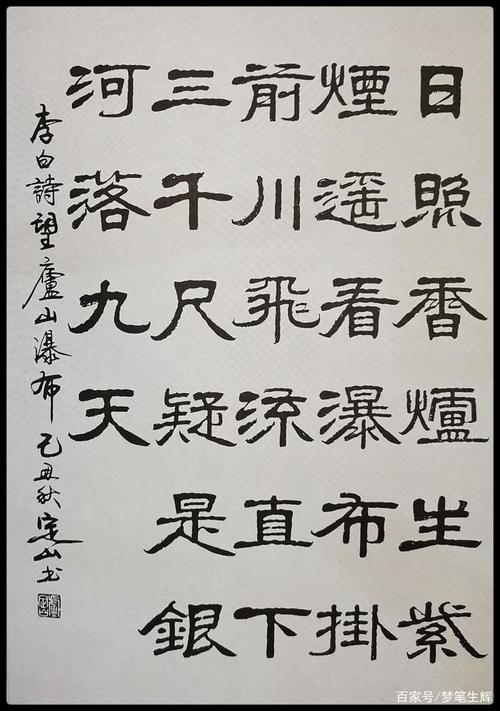 日照香爐生紫
煙遥看瀑布掛
前川飛流直下
三千尺疑是銀
河落九天
李白詩望廬山瀑布己丑秋定山书
百家号/梦笔生辉